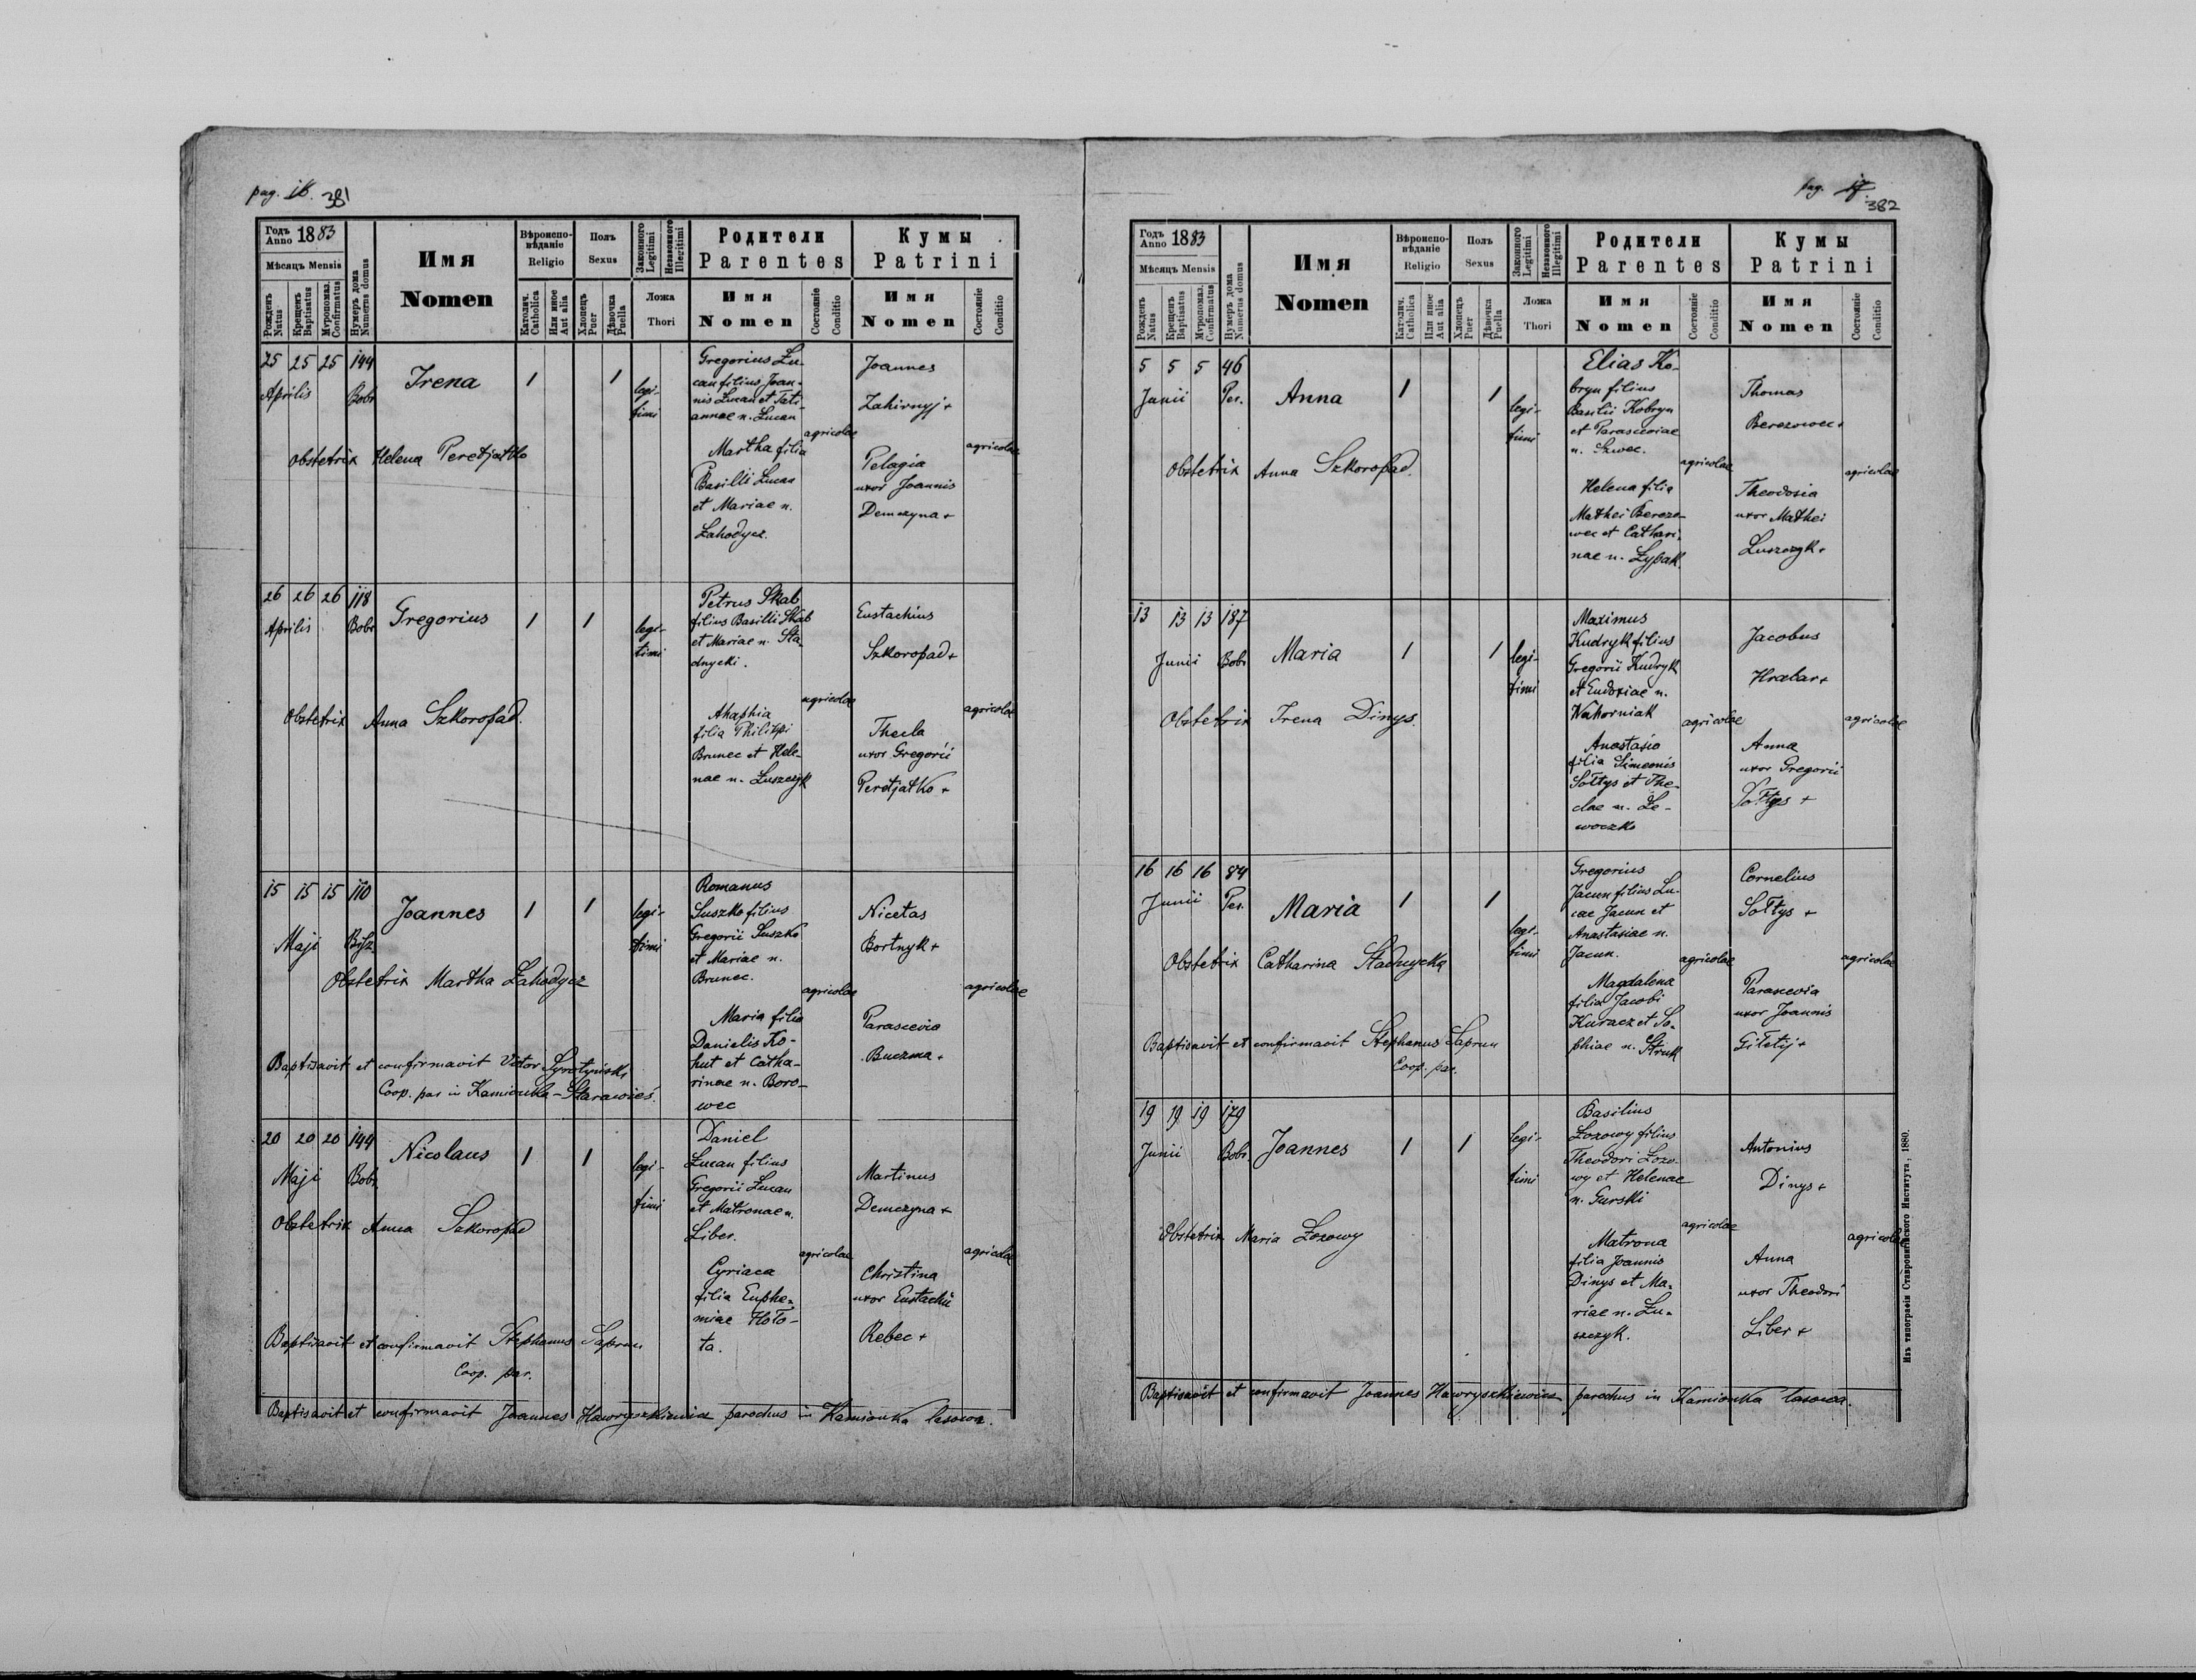 pag. 16. 381
Годъ Anno 1883
Мѣсяцъ Mensis
Рожденъ Natus
Крещенъ Baptisatus
Мѵропомаз. Confirmatus
Нумеръ дома Numerus domus
Имя
Nomen
Вѣроиспо-
вѣданіе
Religio
Католич. Catholica
Или иное Aut alia
Полъ
Sexus
Хлопецъ Puer
Дѣвочка Puella
Законного Legitimi
Незаконного Illegitimi
Ложа
Thori
Родители
Parentes
Имя
Nomen
Состояніе Conditio
Кумы
Patrini
Имя
Nomen
Состояніе Conditio
25 25 25 144
Aprilis Bobr.
Irena
1 1
legi-
timi
Gregorius Lu-
can filius Joan-
nis Lucan et Tati-
annae n. Lucan
agricolae
Martha filia
Basilii Lucan
et Mariae n.
Zahodycz.
Joannes
Zahirnyj +
agricolae
Pelagia
uxor Joannis
Demczyna +
Obstetrix Helena Peretjatko
26 26 26 118
Aprilis Bobr.
Gregorius
1 1
legi-
timi
Petrus Skab
filius Basilii Skab
et Mariae n. Sta-
dnycki.
agricolae
Ahaphia
filia Philippi
Brunec et Hele-
nae n. Łuszczyk
Eustachius
Szkoropad +
agricolae
Thecla
uxor Gregorii
Peretjatko +
Obstetrix Anna Szkoropad.
15 15 15 110
Maji
Joannes
1 1
legi-
timi
Romanus
Suszko filius
Gregorii Suszko
et Mariae n.
Brunec.
agricolae
Maria filia
Danielis Ko-
hut et Catha-
rinae n. Boro-
wec
Nicetas
Bortnyk +
agricolae
Parascevia
Buczma +
Obstetrix Martha Zahodycz
Baptisavit et confirmavit Victor
Coop. par in Kamionka-Starawieś.
20 20 20 144
Maji Bobr.
Nicolaus
1 1
legi-
timi
Daniel
Lucan filius
Gregorii Lucan
et Matronae n.
Liber.
agricolae
Cyriaca
filia Euphe-
miae Hoło-
ta.
Martinus
Demczyna +
agricolae
Christina
uxor Eustachii
Rebec +
Obstetrix Anna Szkoropad
Baptisavit et confirmavit Stephanus Saprun
Coop. par.
Baptisavit et confirmavit Joannes Hawryszkiewicz parochus in Kamionka lasowa.
pag. 17. 382
Годъ Anno 1883
Мѣсяцъ Mensis
Рожденъ Natus
Крещенъ Baptisatus
Мѵропомаз. Confirmatus
Нумеръ дома Numerus domus
Имя
Nomen
Вѣроиспо-
вѣданіе
Religio
Католич. Catholica
Или иное Aut alia
Полъ
Sexus
Хлопецъ Puer
Дѣвочка Puella
Законного Legitimi
Незаконного Illegitimi
Ложа
Thori
Родители
Parentes
Имя
Nomen
Состояніе Conditio
Кумы
Patrini
Имя
Nomen
Состояніе Conditio
5 5 5 46
Junii Per.
Anna
1 1
legi-
timi
Elias Ko-
bryn filius
Basilii Kobryn
et Parasceviae
n. Szwec.
agricolae
Helena filia
Mathei Berezo-
wec et Cathari-
nae n. Łypak.
Thomas
Berezowec +
agricolae
Theodosia
uxor Mathei
Łuszczyk +
Obstetrix Anna Szkoropad.
13 13 13 187
Junii Bobr.
Maria
1 1
legi-
timi
Maximus
Kudryk filius
Gregorii Kudryk
et Eudoxiae n.
Wahorniak
agricolae
Anastasia
filia Simeonis
Sołtys et The-
clae n. Le-
woczko
Jacobus
Hrabar +
agricolae
Anna
uxor Gregorii
Sołtys +
Obstetrix Irena Dinys.
16 16 16 84
Junii Per.
Maria
1 1
legi-
timi
Gregorius
Jacun filius Lu-
cae Jacun et
Anastasiae n.
Jacun.
agricolae
Magdalena
filia Jacobi
Kuracz et So-
phiae n. Struk
Cornelius
Sołtys +
agricolae
Parascevia
uxor Joannis
Giletij +
Obstetrix Catharina Stadnycka
Baptisavit et confirmavit Stephanus Saprun
Coop. par.
19 19 19 179
Junii Bobr.
Joannes
1 1
legi-
timi
Basilius
Łozowy filius
Theodori Łozo-
wy et Helenae
n. Gurski
agricolae
Matrona
filia Joannis
Dinys et Ma-
riae n. Łu-
szczyk.
Antonius
Dinys +
agricolae
Anna
uxor Theodori
Liber +
Obstetrix Maria Łozowy
Baptisavit et confirmavit Joannes Hawryszkiewicz parochus in Kamionka lasowa.
Изъ типографіи Ставропигійского Института, 1880.